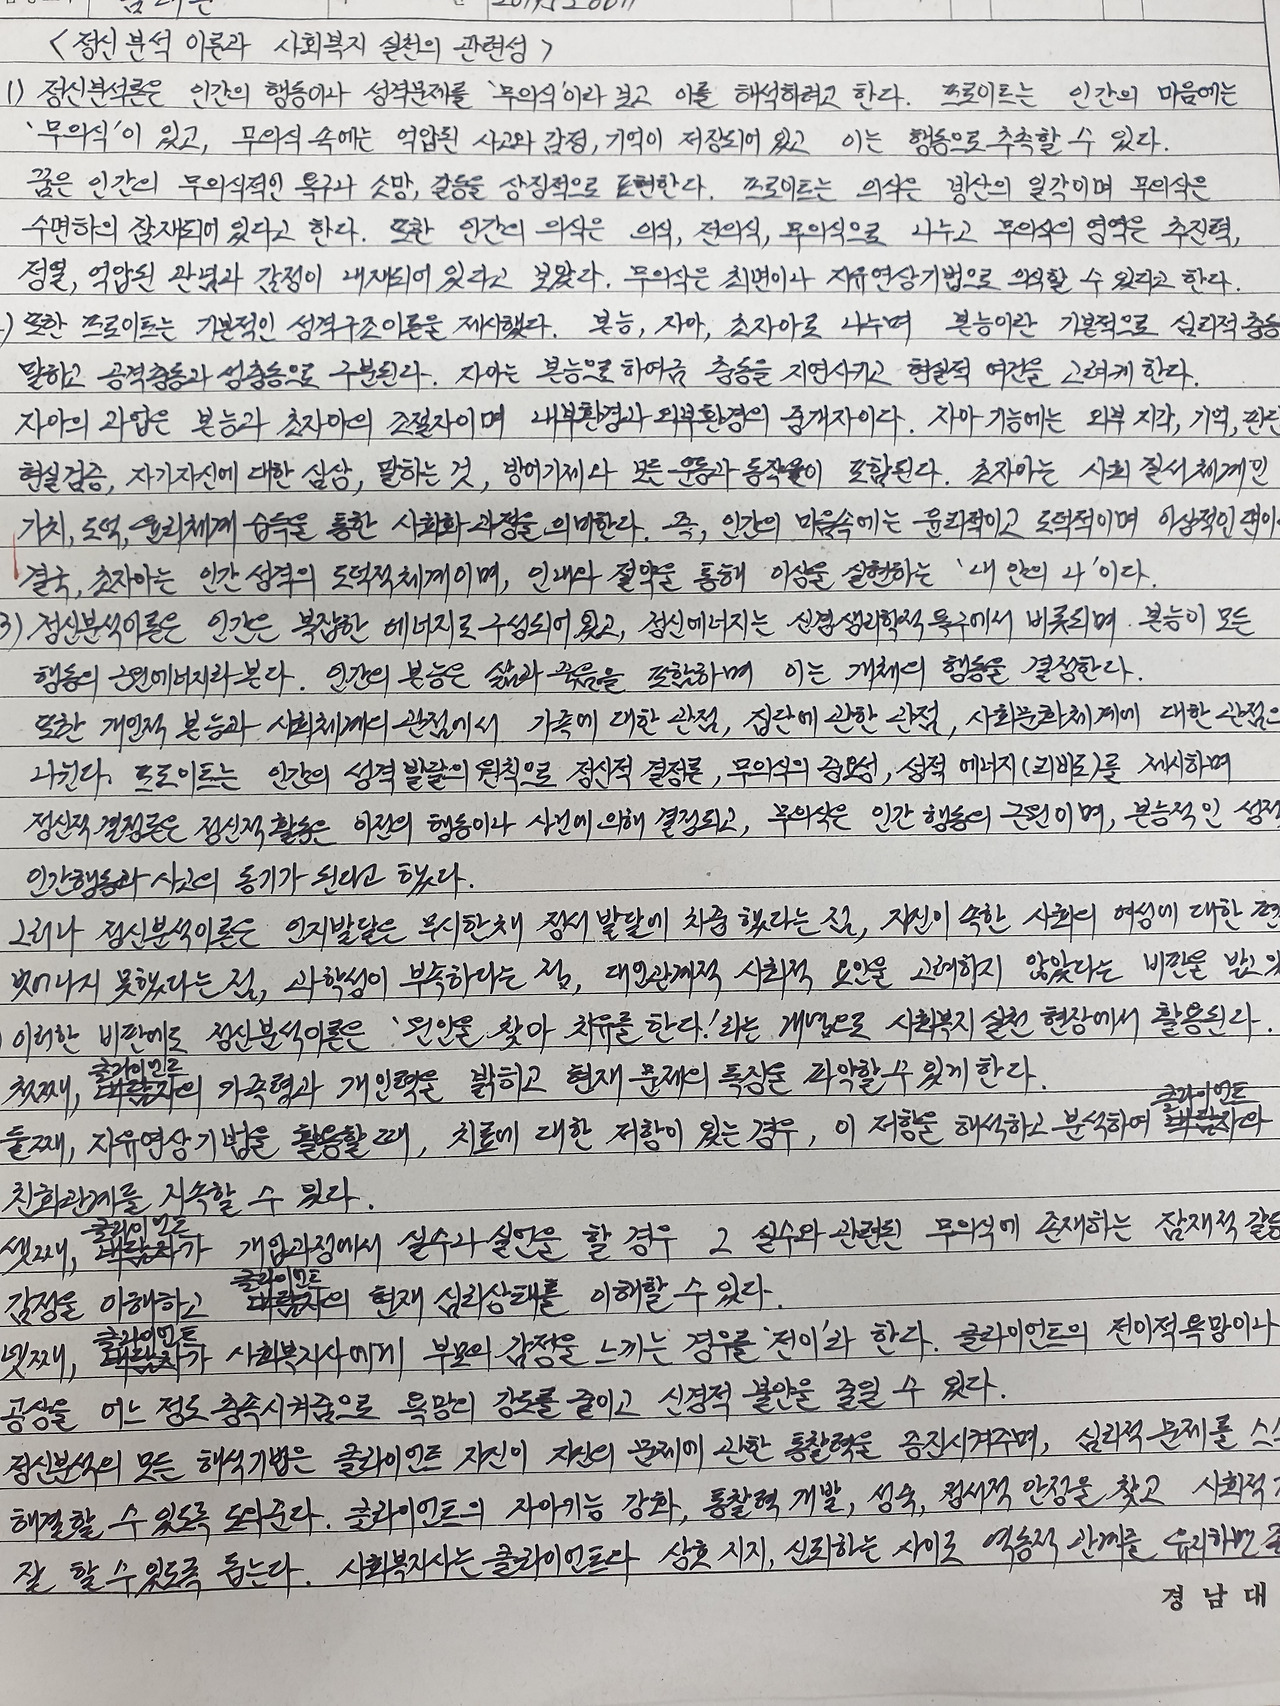 <정신분석 이론과 사회복지 실천의 관련성>
1) 정신분석론은 인간의 행동이나 성격문제를 '무의식'이라 보고 이를 해석하려고 한다. 프로이트는 인간의 마음에는
'무의식'이 있고, 무의식 속에는 억압된 사고와 감정, 기억이 저장되어 있고 이는 행동으로 추측할 수 있다.
꿈은 인간의 무의식적인 욕구나 소망, 갈등을 상징적으로 표현한다. 프로이트는 의식은 빙산의 일각이며 무의식은
수면하의 잠재되어 있다고 한다. 또한 인간의 의식은 의식, 전의식, 무의식으로 나누고 무의식의 영역은 추진력,
정열, 억압된 관념과 감정이 내재되어 있다고 보았다. 무의식은 최면이나 자유연상기법으로 의식할 수 있다고 한다.
) 또한 프로이트는 기본적인 성격구조이론을 제시했다. 본능, 자아, 초자아로 나누며 본능이란 기본적으로 심리적 충동
말하고 공격충동과 성충동으로 구분된다. 자아는 본능으로 하여금 충동을 지연시키고 현실적 여건을 고려케 한다.
자아의 과업은 본능과 초자아의 조절자이며 내부환경과 외부환경의 중개자이다. 자아 기능에는 외부 지각, 기억, 판단
현실검증, 자기자신에 대한 심상, 말하는 것, 방어기제와 모든 운동과 동작들이 포함된다. 초자아는 사회 질서 체계인
가치, 도덕, 윤리체계 습득을 통한 사회화 과정을 의미한다. 즉, 인간의 마음속에는 윤리적이고 도덕적이며 이상적인
결국, 초자아는 인간 성격의 도덕적체계이며, 인내와 절약을 통해 이상을 실현하는 '내 안의 나'이다.
3) 정신분석이론은 인간은 복잡한 에너지로 구성되어 있고, 정신에너지는 신경생리학적 욕구에서 비롯되며 본능이 모든
행동의 근원에너지라 본다. 인간의 본능은 삶과 죽음을 포함하며 이는 개체의 행동을 결정한다.
또한 개인적 본능과 사회체계의 관점에서 가족에 대한 관점, 집단에 관한 관점, 사회문화체계에 대한 관점으
나뉜다. 프로이트는 인간의 성격 발달의 원칙으로 정신적 결정론, 무의식의 중요성, 성적 에너지(리비도)를 제시하며
정신적 결정론은 정신적 활동은 이전의 행동이나 사건에 의해 결정되고, 무의식은 인간 행동의 근원이며, 본능적인 성적
인간행동과 사고의 동기가 된다고 했다.
그러나 정신분석이론은 인지발달은 무시한채 정서발달에 치중 했다는 점, 자신이 속한 사회의 여성에 대한 편견
벗어나지 못했다는 점, 과학성이 부족하다는 점, 대인관계적 사회적 요인을 고려하지 않았다는 비판을 받고 있
) 이러한 비판에도 정신분석이론은 '원인을 찾아 치유를 한다!'라는 개념으로 사회복지실천 현장에서 활용된다.
첫째, 클라이언트의 가족력과 개인력을 밝히고 현재 문제의 특징을 파악할 수 있게 한다.
둘째, 자유연상기법을 활용할 때, 치료에 대한 저항이 있는 경우, 이 저항을 해석하고 분석하여 클라이언트와
친화관계를 지속할 수 있다.
셋째, 클라이언트가 개입과정에서 실수나 실언을 할 경우 그 실수와 관련된 무의식에 존재하는 잠재적 갈등
감정을 이해하고 클라이언트의 현재 심리상태를 이해할 수 있다.
넷째, 클라이언트가 사회복지사에게 부모의 감정을 느끼는 경우를 '전이'라 한다. 클라이언트의 전이적 욕망이나
공상을 어느 정도 충족시켜줌으로 욕망의 강도를 줄이고 신경적 불안을 줄일 수 있다.
정신분석의 모든 해석기법은 클라이언트 자신이 자신의 문제에 관한 통찰력을 증진시켜주며, 심리적 문제를 스스
해결할 수 있도록 도와준다. 클라이언트의 자아기능 강화, 통찰력 개발, 성숙, 정서적 안정을 찾고 사회적
잘 할 수 있도록 돕는다. 사회복지사는 클라이언트와 상호 지지, 신뢰하는 사이로 역동적 관계를 유지하면
경 남 대